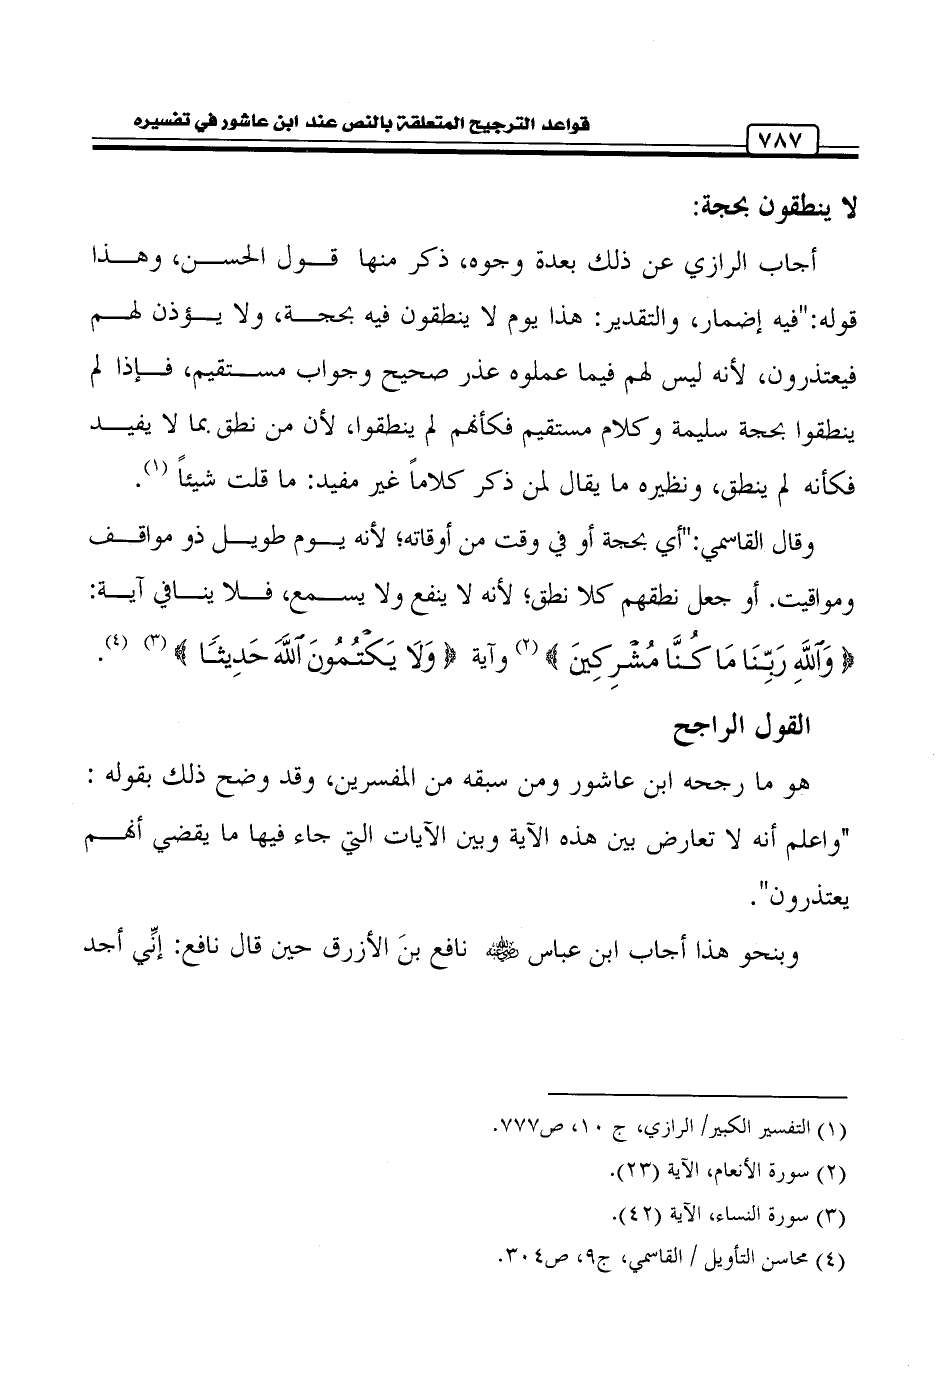 قواعد الترجيح المتعلقة بالنص عند ابن عاشور في تفسيره
٧٨٧
لا ينطقون بحجة:
أجاب الرازي عن ذلك بعدة وجوه، ذكر منها قول الحسن، وهذا
قوله:"فيه إضمار، والتقدير: هذا يوم لا ينطقون فيه بحجة، ولا يؤذن لهم
فيعتذرون، لأنه ليس لهم فيما عملوه عذر صحيح وجواب مستقيم، فإذا لم
ينطقوا بحجة سليمة وكلام مستقيم فكأنهم لم ينطقوا، لأن من نطق بما لا يفيد
فكأنه لم ينطق، ونظيره ما يقال لمن ذكر كلاماً غير مفيد: ما قلت شيئاً (١).
وقال القاسمي:"أي بحجة أو في وقت من أوقاته؛ لأنه يوم طويل ذو مواقف
ومواقيت. أو جعل نطقهم كلا نطق؛ لأنه لا ينفع ولا يسمع، فلا ينافي آية:
﴿ وَٱللَّهِ رَبِّنَا مَا كُنَّا مُشْرِكِينَ ﴾ (٢) وآية ﴿ وَلَا يَكْتُمُونَ ٱللَّهَ حَدِيثًا ﴾ (٣) (٤).
القول الراجح
هو ما رجحه ابن عاشور ومن سبقه من المفسرين، وقد وضح ذلك بقوله :
"واعلم أنه لا تعارض بين هذه الآية وبين الآيات التي جاء فيها ما يقضي أنهم
يعتذرون".
وبنحو هذا أجاب ابن عباس رضي الله عنه نافع بنَ الأزرق حين قال نافع: إنِّي أجد
(١) التفسير الكبير/ الرازي، ج ١٠، ص٧٧٧.
(٢) سورة الأنعام، الآية (٢٣).
(٣) سورة النساء، الآية (٤٢).
(٤) محاسن التأويل / القاسمي، ج٩، ص٣٠٤.